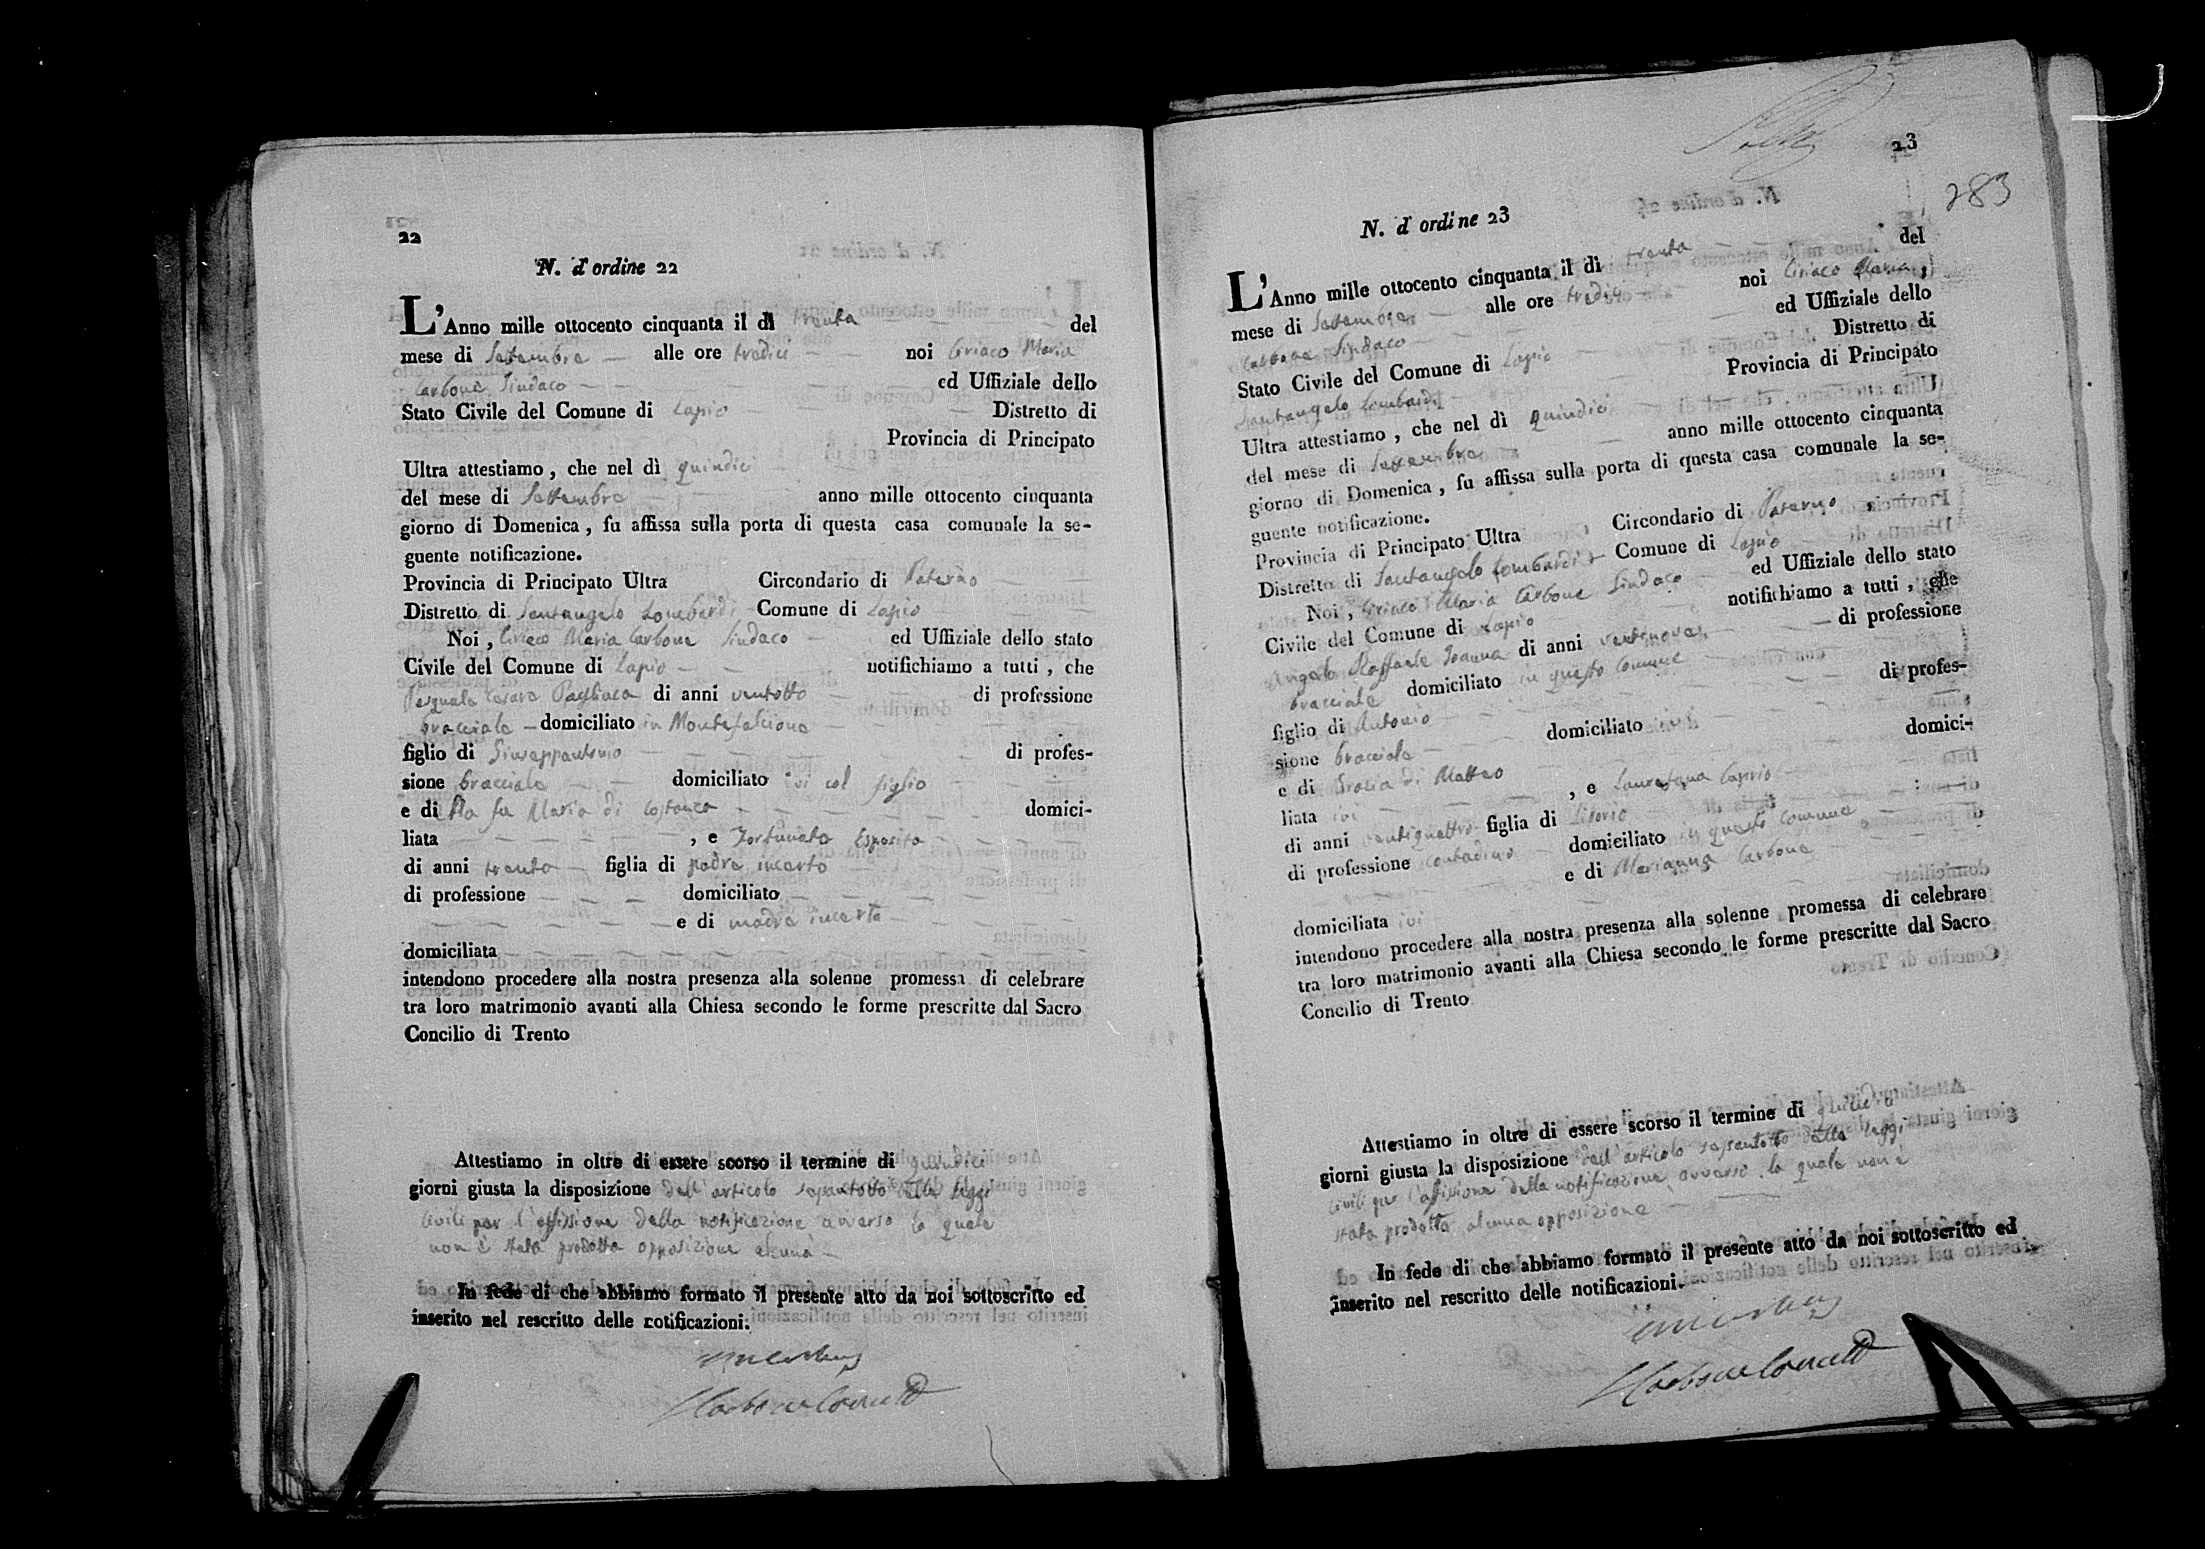 22
N. d'ordine 22
L'Anno mille ottocento cinquanta il dì trenta del
mese di Settembre alle ore tredici noi Ciriaco Maria
Carbone Sindaco ed Uffiziale dello
Stato Civile del Comune di Lapio Distretto di
Provincia di Principato
Ultra attestiamo, che nel dì quindici
del mese di Settembre anno mille ottocento cinquanta
giorno di Domenica, fu affissa sulla porta di questa casa comunale la se-
guente notificazione.
Provincia di Principato Ultra Circondario di Paterno
Distretto di Santangelo Lombardi Comune di Lapio
Noi, Ciriaco Maria Carbone Sindaco ed Uffiziale dello stato
Civile del Comune di Lapio notifichiamo a tutti, che
Pasquale Cesare di anni ventotto di professione
bracciale domiciliato in Montefalcione
figlio di Giuseppantonio di profes-
sione bracciale domiciliato ivi col figlio
e di fu Maria di Costanzo domici-
liata , e Fortunata Esposito
di anni trenta figlia di padre incerto
di professione domiciliato
e di madre incerta
domiciliata
intendono procedere alla nostra presenza alla solenne promessa di celebrare
tra loro matrimonio avanti alla Chiesa secondo le forme prescritte dal Sacro
Concilio di Trento
Attestiamo in oltre di essere scorso il termine di quindici
giorni giusta la disposizione dell'articolo sepantotto delle leggi
Civili per l'affissione della notificazione avverso la quale
non è stata prodotta opposizione alcuna
In fede di che abbiamo formato il presente atto da noi sottoscritto ed
inserito nel rescritto delle notificazioni.
23
283
N. d'ordine 23
L'Anno mille ottocento cinquanta il dì trenta del
mese di Settembre alle ore tredici noi Ciriaco Maria,
Carbone Sindaco ed Uffiziale dello
Stato Civile del Comune di Lapio Distretto di
Santangelo Lombardi Provincia di Principato
Ultra attestiamo, che nel dì quindici
del mese di Settembre anno mille ottocento cinquanta
giorno di Domenica, fu affissa sulla porta di questa casa comunale la se-
guente notificazione.
Provincia di Principato Ultra Circondario di Paterno
Distretto di Santangelo Lombardi Comune di Lapio
Noi, Ciriaco Maria Carbone Sindaco ed Uffiziale dello stato
Civile del Comune di Lapio notifichiamo a tutti, che
Angelo Raffaele Ioanna di anni ventinove di professione
bracciale domiciliato in questo Comune
figlio di Antonio di profes-
sione bracciale domiciliato ivi
e di Grazia di Matteo domici-
liata ivi , e Lauretana Caprio
di anni ventiquattro figlia di Liborio
di professione contadino domiciliato in questo comune
e di Marianna Carbone
domiciliata ivi
intendono procedere alla nostra presenza alla solenne promessa di celebrare
tra loro matrimonio avanti alla Chiesa secondo le forme prescritte dal Sacro
Concilio di Trento
Attestiamo in oltre di essere scorso il termine di quindici
giorni giusta la disposizione dell'articolo sepantotto delle leggi
Civili per l'affissione della notificazione avverso la quale non è
stata prodotta alcuna opposizione
In fede di che abbiamo formato il presente atto da noi sottoscritto ed
inserito nel rescritto delle notificazioni.